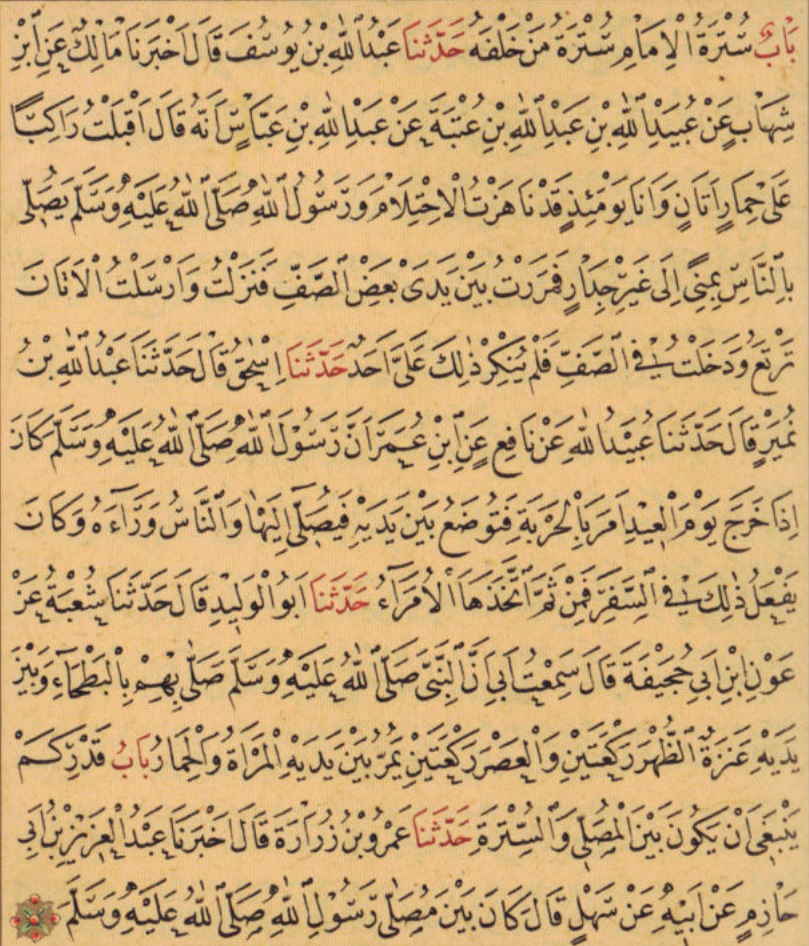 بَابٌ سُتْرَةُ الْاِمَامِ سُتْرَةُ مَنْ خَلْفَهُ حَدَّثَنَا عَبْدُ اللّٰهِ بْنُ يُوسُفَ قَالَ اَخْبَرَنَا مَالِكٌ عَنِ ابْنِ
شِهَابٍ عَنْ عُبَيْدِ اللّٰهِ بْنِ عَبْدِ اللّٰهِ بْنِ عُتْبَةَ عَنْ عَبْدِ اللّٰهِ بْنِ عَبَّاسٍ اَنَّهُ قَالَ اَقْبَلْتُ رَاكِبًا
عَلَى حِمَارٍ اَتَانٍ وَاَنَا يَوْمَئِذٍ قَدْ نَاهَزْتُ الْاِحْتِلَامَ وَرَسُولُ اللّٰهِ صَلَّى اللّٰهُ عَلَيْهِ وَسَلَّمَ يُصَلِّى
بِالنَّاسِ بِمِنًى اِلَى غَيْرِ جِدَارٍ فَمَرَرْتُ بَيْنَ يَدَىْ بَعْضِ الصَّفِّ فَنَزَلْتُ وَاَرْسَلْتُ الْاَتَانَ
تَرْتَعُ وَدَخَلْتُ فِى الصَّفِّ فَلَمْ يُنْكِرْ ذٰلِكَ عَلَىَّ اَحَدٌ حَدَّثَنَا اِسْحٰقُ قَالَ حَدَّثَنَا عَبْدُ اللّٰهِ بْنُ
نُمَيْرٍ قَالَ حَدَّثَنَا عُبَيْدُ اللّٰهِ عَنْ نَافِعٍ عَنِ ابْنِ عُمَرَ اَنَّ رَسُولَ اللّٰهِ صَلَّى اللّٰهُ عَلَيْهِ وَسَلَّمَ كَانَ
اِذَا خَرَجَ يَوْمَ الْعِيدِ اَمَرَ بِالْحَرْبَةِ فَتُوضَعُ بَيْنَ يَدَيْهِ فَيُصَلِّى اِلَيْهَا وَالنَّاسُ وَرَاءَهُ وَكَانَ
يَفْعَلُ ذٰلِكَ فِى السَّفَرِ فَمِنْ ثَمَّ اتَّخَذَهَا الْاُمَرَاءُ حَدَّثَنَا اَبُو الْوَلِيدِ قَالَ حَدَّثَنَا شُعْبَةُ عَنْ
عَوْنِ ابْنِ اَبِى جُحَيْفَةَ قَالَ سَمِعْتُ اَبِى اَنَّ النَّبِىَّ صَلَّى اللّٰهُ عَلَيْهِ وَسَلَّمَ صَلَّى بِهِمْ بِالْبَطْحَاءِ وَبَيْنَ
يَدَيْهِ عَنَزَةٌ الظُّهْرَ رَكْعَتَيْنِ وَالْعَصْرَ رَكْعَتَيْنِ يَمُرُّ بَيْنَ يَدَيْهِ الْمَرْاَةُ وَالْحِمَارُ بَابُ قَدْرِ كَمْ
يَنْبَغِى اَنْ يَكُونَ بَيْنَ الْمُصَلِّى وَالسُّتْرَةِ حَدَّثَنَا عَمْرُو بْنُ زُرَارَةَ قَالَ اَخْبَرَنَا عَبْدُ الْعَزِيزِ بْنُ اَبِى
حَازِمٍ عَنْ اَبِيهِ عَنْ سَهْلٍ قَالَ كَانَ بَيْنَ مُصَلَّى رَسُولِ اللّٰهِ صَلَّى اللّٰهُ عَلَيْهِ وَسَلَّمَ